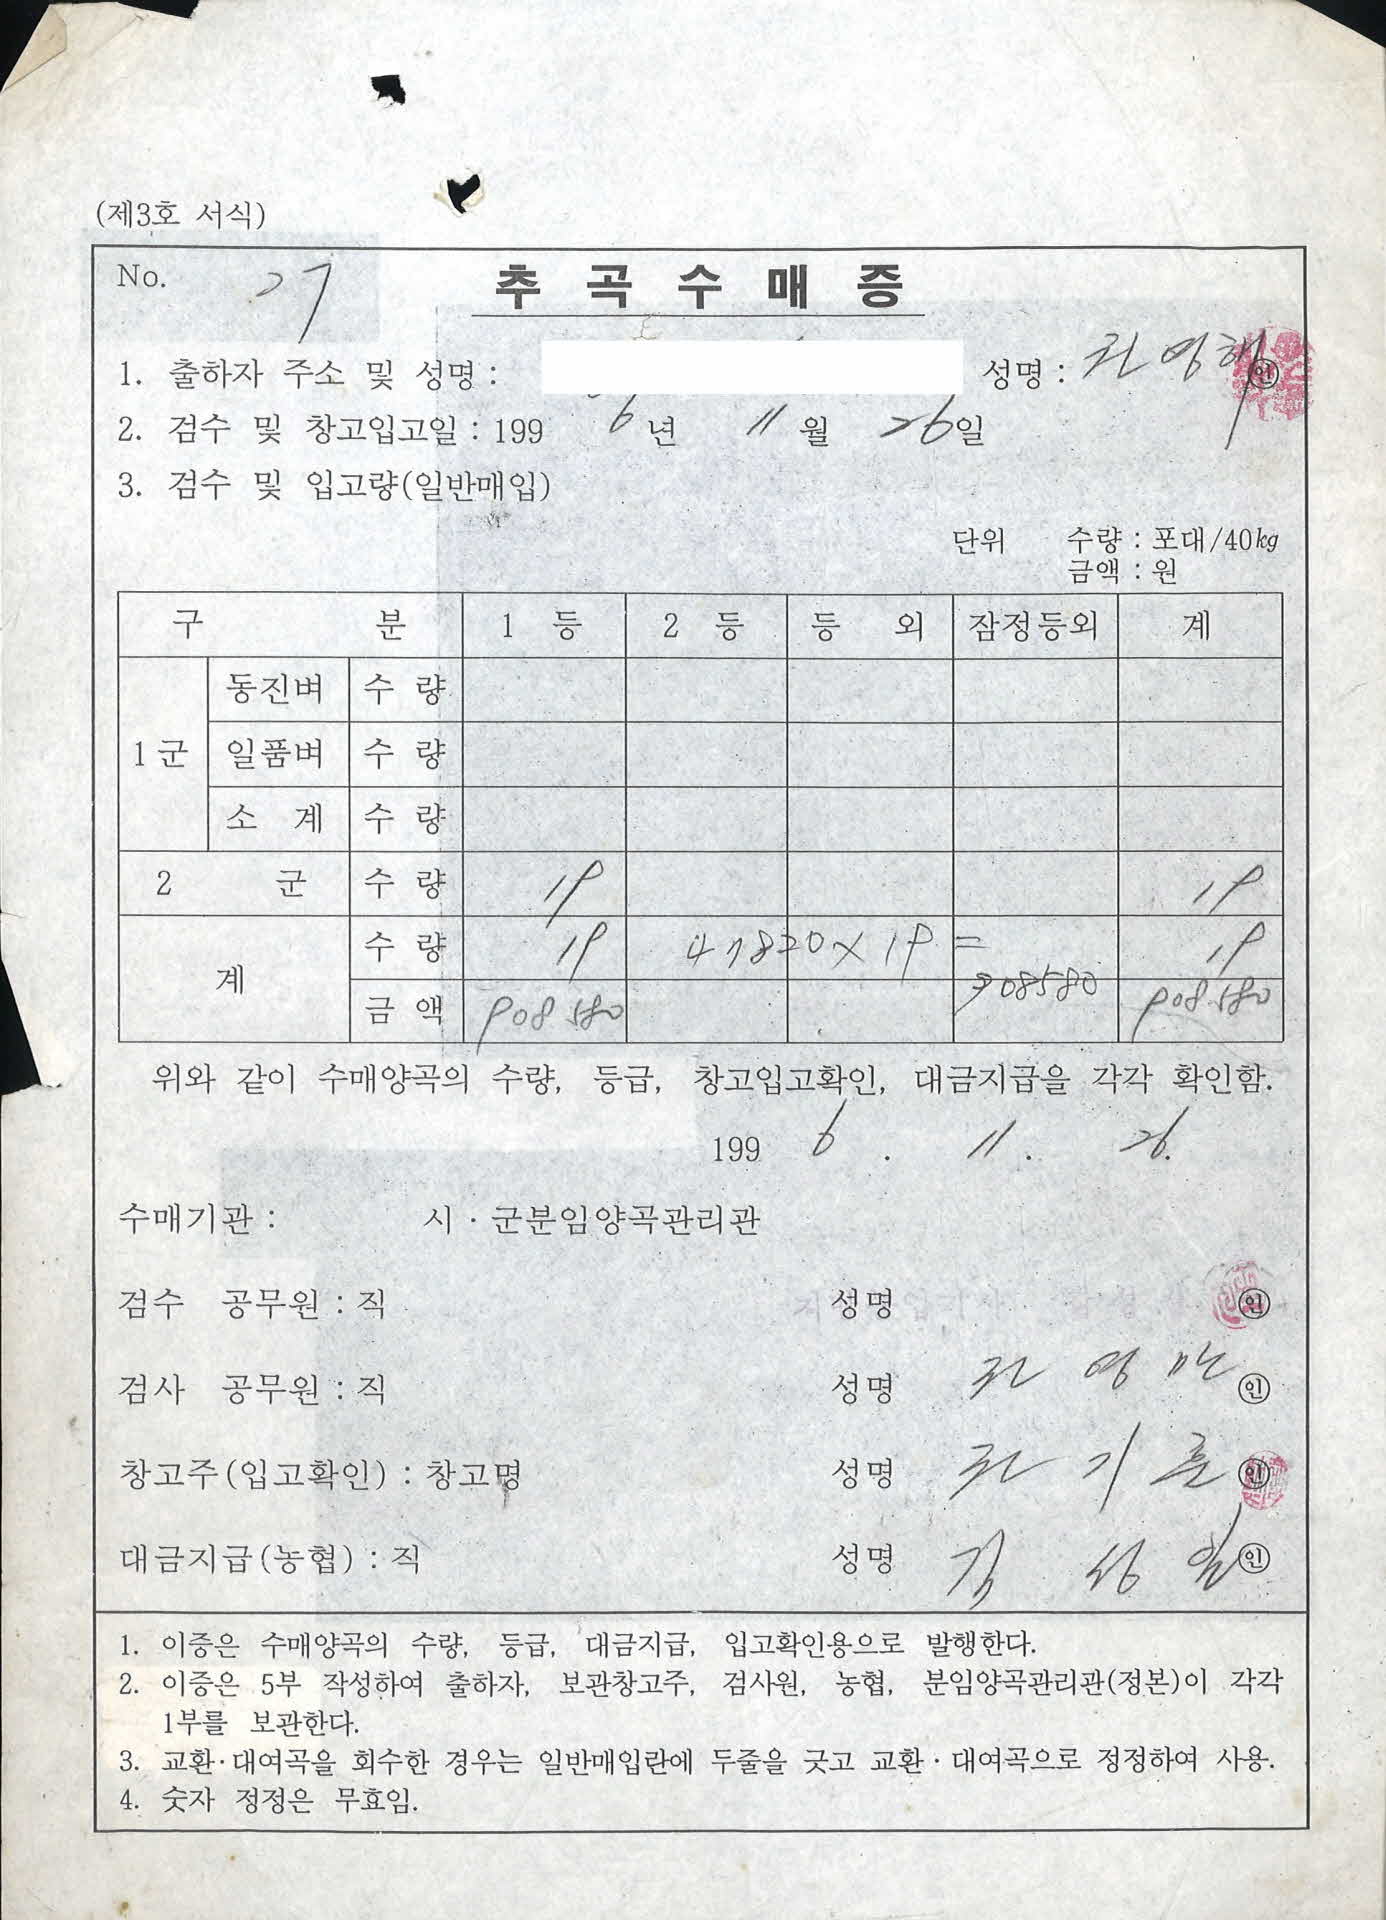 (제3호 서식)
No. 27
추곡수매증
1. 출하자 주소 및 성명 : 성명 : 권영해 ㊞
2. 검수 및 창고입고일 : 1996년 11월 26일
3. 검수 및 입고량(일반매입)
단위 수량 : 포대/40kg
금액 : 원
구 분 1 등 2 등 등 외 잠정등외 계
1군 동진벼 수 량
일품벼 수 량
소 계 수 량
2 군 수 량 19 19
계 수 량 19 47820 x 19 = 19
금 액 908580 908580 908580
위와 같이 수매양곡의 수량, 등급, 창고입고확인, 대금지급을 각각 확인함.
1996 . 11 . 26.
수매기관 : 시·군분임양곡관리관
검수 공무원 : 직 성명 ㊞
검사 공무원 : 직 성명 권영만 ㊞
창고주(입고확인) : 창고명 성명 권기훈 ㊞
대금지급(농협) : 직 성명 ㊞
1. 이증은 수매양곡의 수량, 등급, 대금지급, 입고확인용으로 발행한다.
2. 이증은 5부 작성하여 출하자, 보관창고주, 검사원, 농협, 분임양곡관리관(정본)이 각각
1부를 보관한다.
3. 교환·대여곡을 회수한 경우는 일반매입란에 두줄을 긋고 교환·대여곡으로 정정하여 사용.
4. 숫자 정정은 무효임.